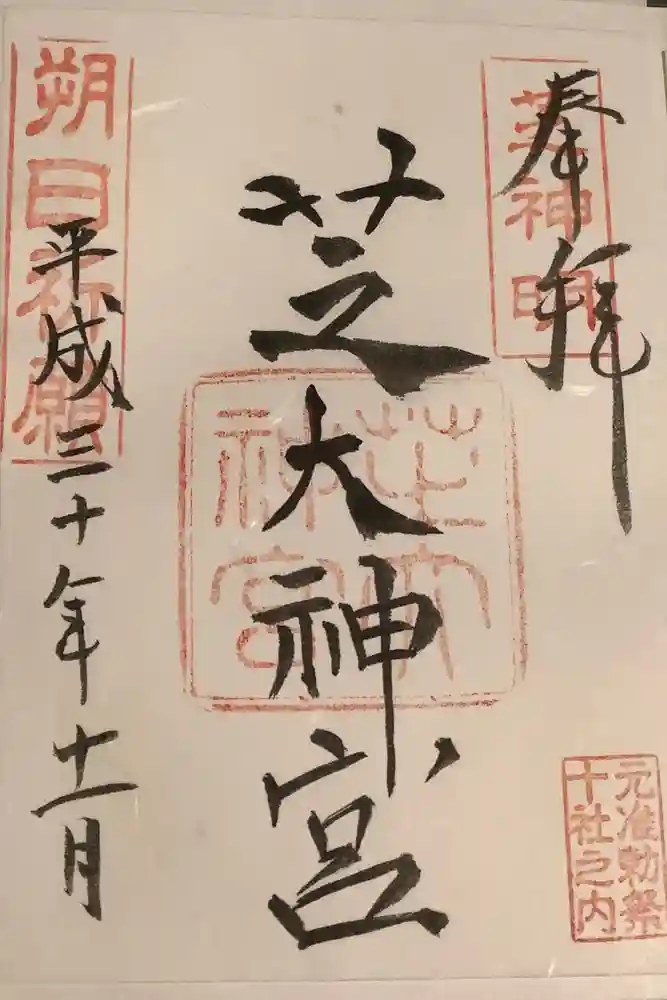 奉拝
芝神明
元准勅祭
十社之内
芝大神宮
芝大
神宮
平成三十年十一月
朔日祈願